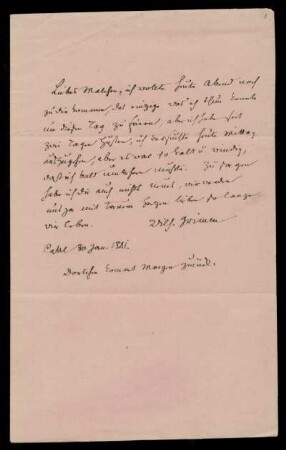 Liebes Malchen, ich wollte heute Abend noch
zu dir kommen, das einzige was ich thun konnte
um diesen Tag zu feiern, aber ich habe seit
zwei Tagen Husten, ich versuchte heute Mittag
auszugehen, aber es war so kalt u. windig,
daß ich bald umkehren mußte. Zu sagen
habe ich dir auch nichts neues, wir werden
uns ja mit treuem Herzen lieben so lange
wir leben.
Wilh. Grimm
Cassel 30 Jan.
Dortchen kommt Morgen zurück.